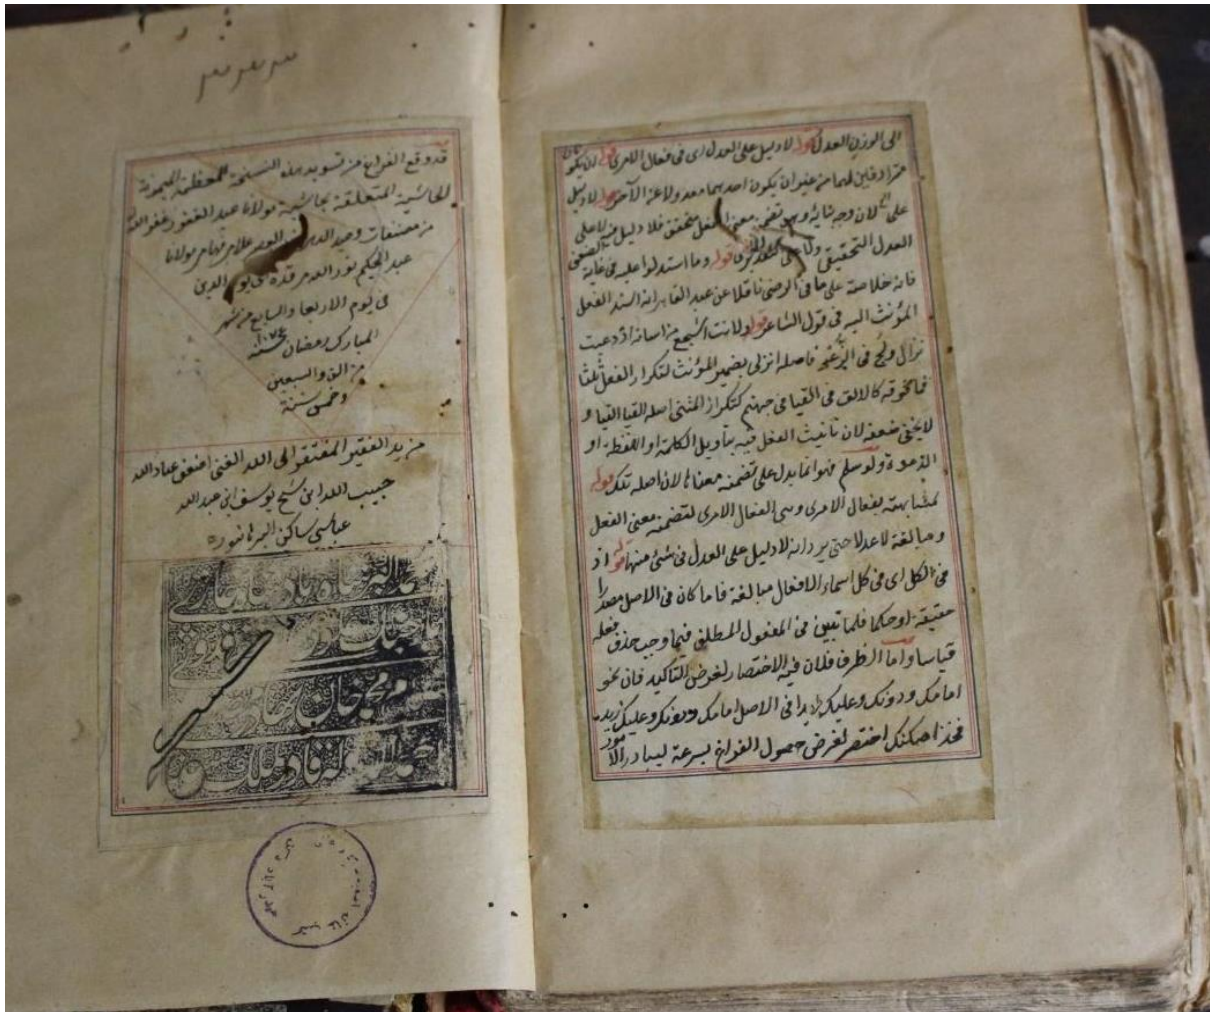 الى الوزن العدل قوله لا دليل على العدل اى فى فعال الامرى قوله ان يكو
مترادفين لهما من غير ان يكون احدهما معدولا عن الآخر قوله لا دليل
على لان وجه بنائه وهو تضمن معنى الفعل متحقق فلا دليل فيه لا على
العدل التحقيقى ولا على التقديرى قوله وما استدلوا عليه فى غاية الضعف
فانه خلاصة على ما فى الرضى ناقلا عن عبد القاهر انه اسند الفعل
المؤنث اليه فى قول الشاعر قوله ولانت اشجع من اسامة اذ دعيت
نزال ولج فى الذعر فاصله انزلى بضمير المؤنث لتكرار الفعل ثلثا
فما فوقه كالالف فى القيا فى جهنم كتكرار المثنى اصله الق الق و
لا يخفى ضعفه لان تانيث الفعل فيه بتاويل الكلمة او اللفظة او
الدعوة ولو سلم فهو انما يدل على تضمنه معناها لان اصله تلك قوله
لمشابهته لفعال الامرى وبنى الفعال الامرى لتضمنه معنى الفعل
ومبالغة لا عدلا حتى يرد انه لا دليل على العدل فى شئ منها قوله اذ
فى الكل اى فى كل اسماء الافعال مبالغة فاما كان فى الاصل مصدرا
حقيقة او حكما فلما تبين فى المفعول المطلق فيما وجب حذف فعله
قياسا واما الظرف فلان فيه الاختصار لغرض التاكيد فان نحو
امامك ودونك وعليك زيدا فى الاصل امامك ودونك وعليك زيد
فخذ امكنك اختصر لغرض حصول الفراغ بسرعة ليبادر الامور
قد وقع الفراغ من تسويد هذه النسخة المعظمة الميمونة
الحاشية المتعلقة بحاشية مولانا عبد الغفور غفر الله
من مصنفات وحيد الدهر العصر علامى فهامى مولانا
عبد الحكيم نور الله مرقده الى يوم الدين
فى يوم الاربعا والسابع من شهر
المبارك رمضان سنة
من الف والسبعين
وخمس سنة
من يد الفقير المفتقر الى الله الغنى اضعف عباد الله
حبيب الله ابن شيخ يوسف ابن عبد الله
عباسى ساكن البرهانپور